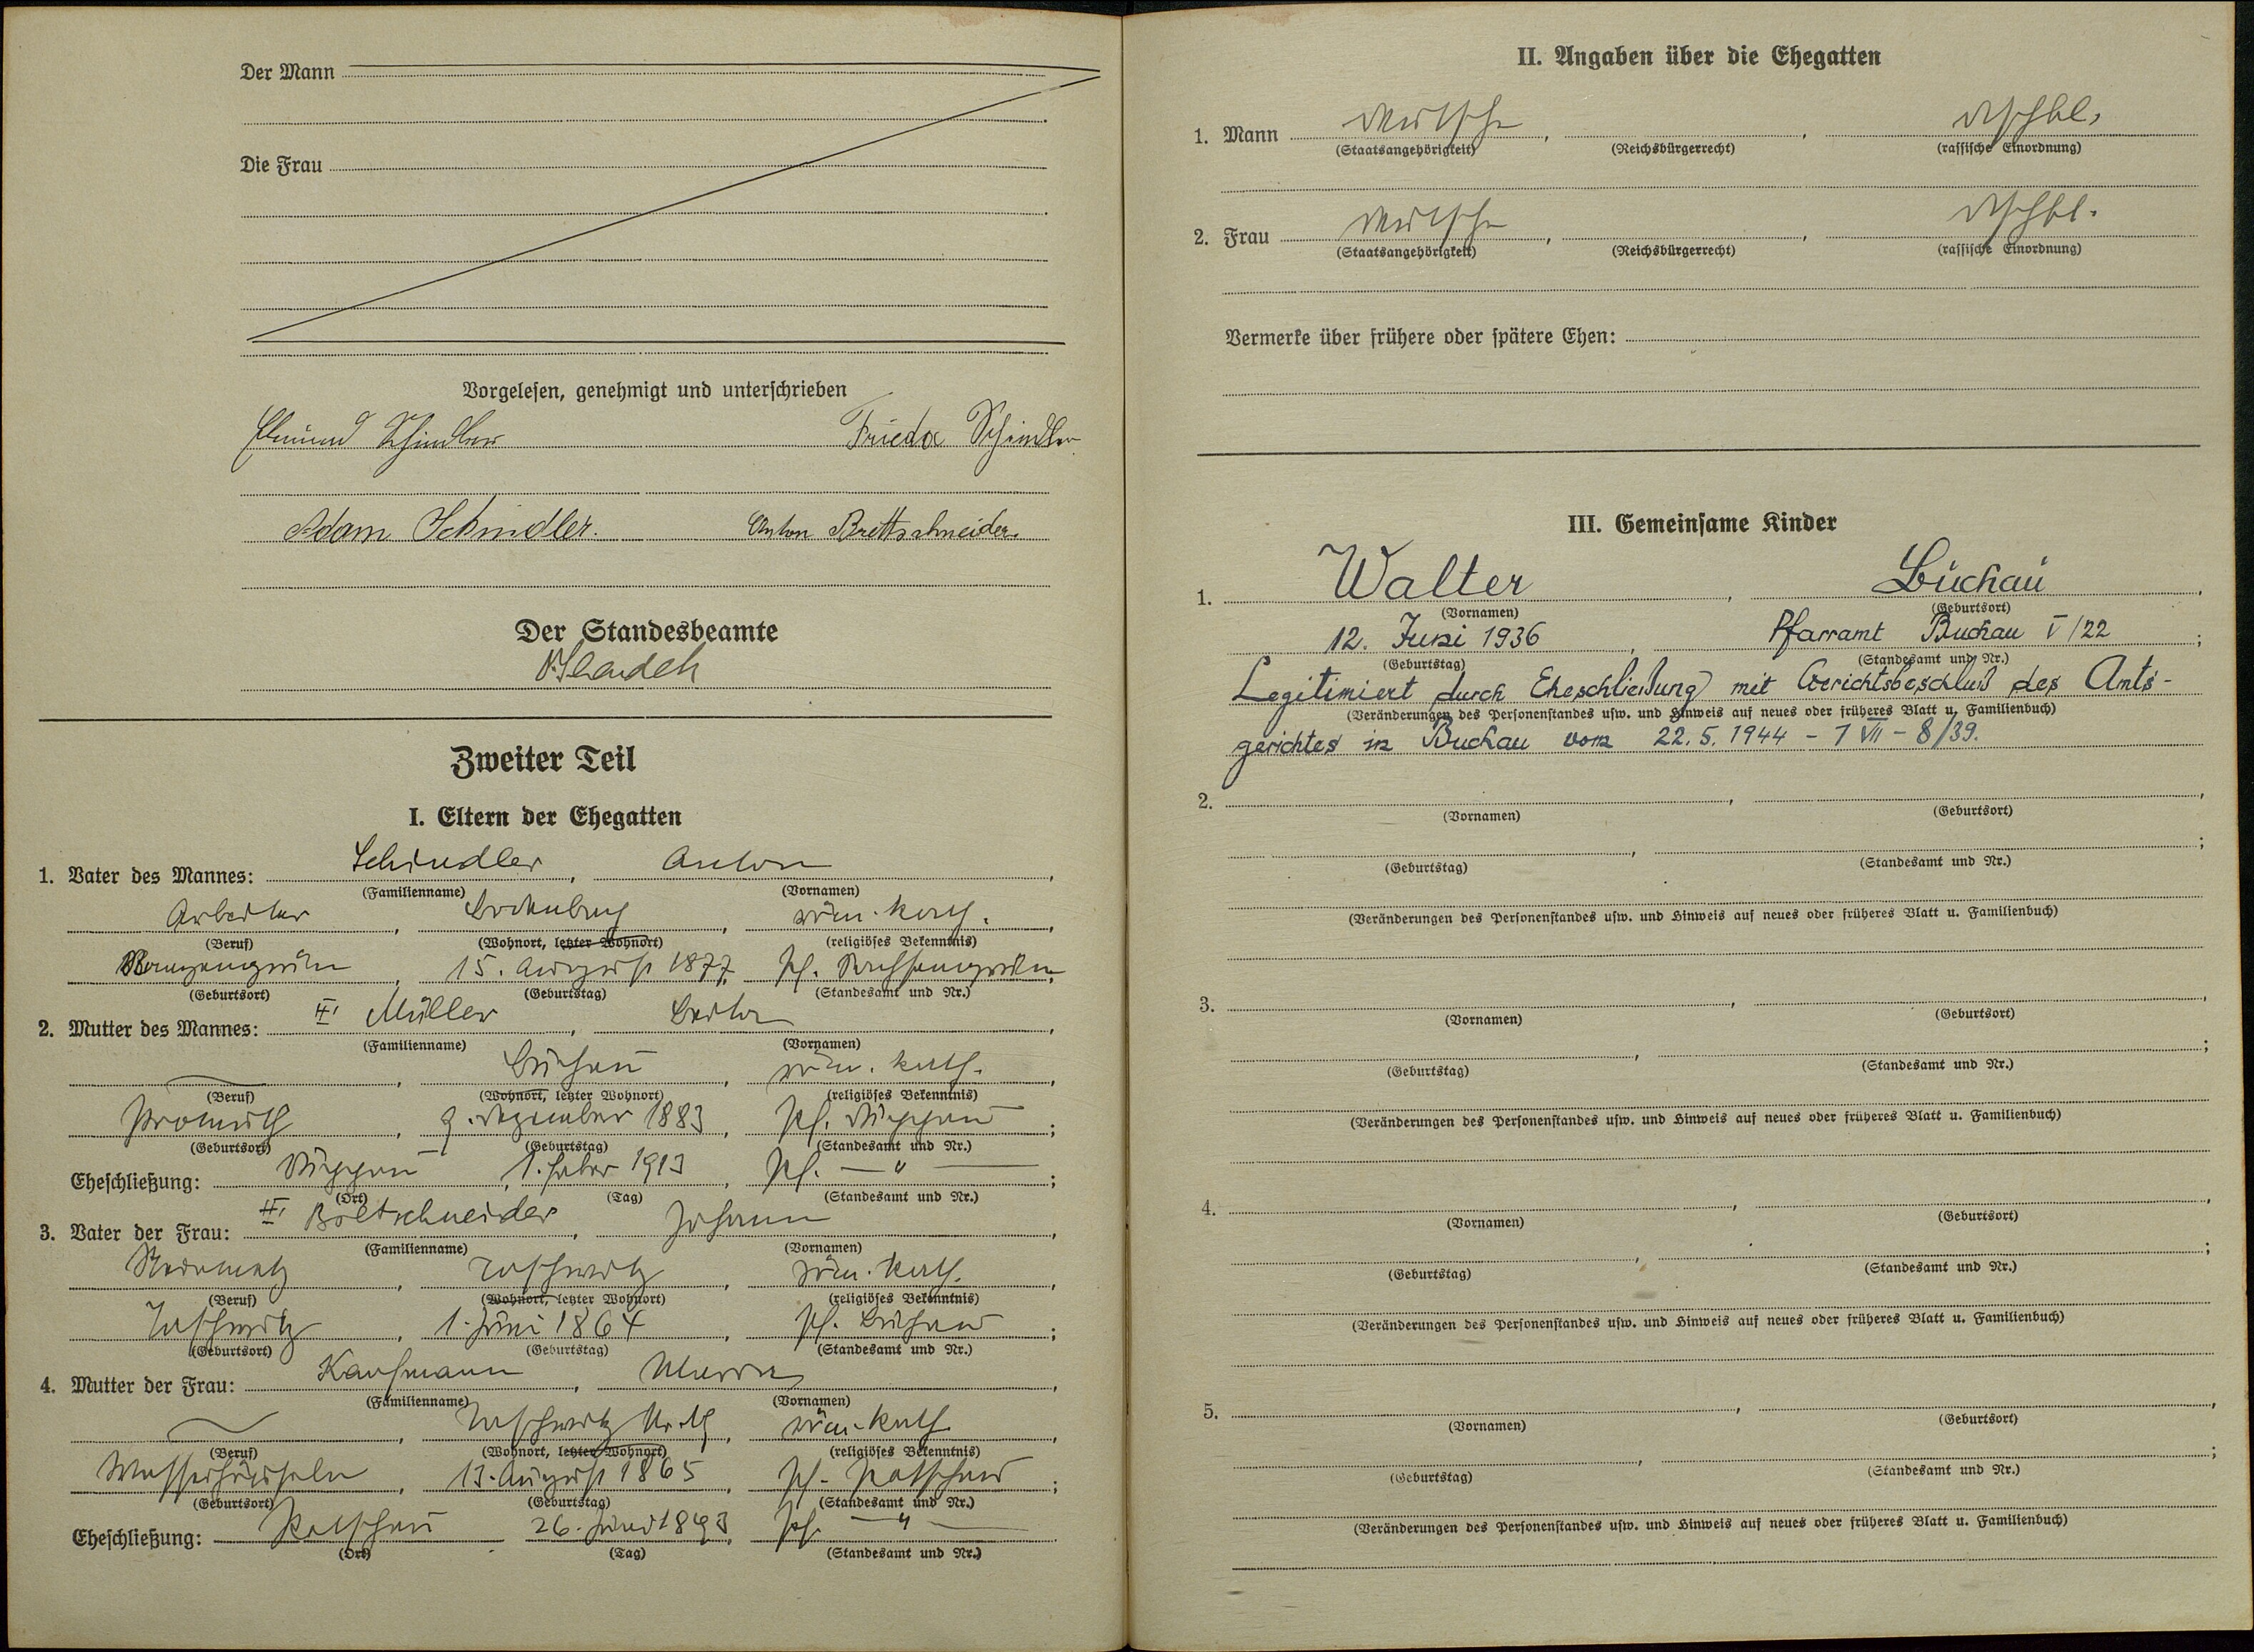 Der Mann
Die Frau
Vorgelesen, genehmigt und unterschrieben
Schindler Frieda Schindler
Adam Schindler. Anton Brettschneider.
Der Standesbeamte
Zweiter Teil
I. Eltern der Ehegatten
1. Vater des Mannes: Schindler, Anton,
(Familienname) (Vornamen)
Arbeiter, röm. kath.,
(Beruf) (Wohnort, letzter Wohnort) (religiöses Bekenntnis)
15. August 1877, Pf.
(Geburtsort) (Geburtstag) (Standesamt und Nr.)
2. Mutter des Mannes: II. Müller, Berta,
(Familienname) (Vornamen)
Buchau, röm. kath.,
(Beruf) (Wohnort, letzter Wohnort) (religiöses Bekenntnis)
Promuth, 9. Dezember 1883, Pf. Luppau;
(Geburtsort) (Geburtstag) (Standesamt und Nr.)
Eheschließung: Luppau, 1. Feber 1913, Pf. — " —;
(Ort) (Tag) (Standesamt und Nr.)
3. Vater der Frau: II. Johann,
(Familienname) (Vornamen)
Taschwitz, röm. kath.,
(Beruf) (Wohnort, letzter Wohnort) (religiöses Bekenntnis)
Taschwitz, 1. Juni 1864, Pf. Buchau;
(Geburtsort) (Geburtstag) (Standesamt und Nr.)
4. Mutter der Frau: Kaufmann, Maria,
(Familienname) (Vornamen)
Taschwitz röm. kath.,
(Beruf) (Wohnort, letzter Wohnort) (religiöses Bekenntnis)
Wasserhäuseln, 13. August 1865, Pf.;
(Geburtsort) (Geburtstag) (Standesamt und Nr.)
Eheschließung: 26. 1893, Pf. — " —
(Ort) (Tag) (Standesamt und Nr.)
II. Angaben über die Ehegatten
1. Mann deutsche, , dtschbl.
(Staatsangehörigkeit) (Reichsbürgerrecht) (rassische Einordnung)
2. Frau deutsche, , dtschbl.
(Staatsangehörigkeit) (Reichsbürgerrecht) (rassische Einordnung)
Vermerke über frühere oder spätere Ehen:
III. Gemeinsame Kinder
1. Walter, Buchau,
(Vornamen) (Geburtsort)
12. Juni 1936, Pfarramt Buchau V/22;
(Geburtstag) (Standesamt und Nr.)
Legitimiert durch Eheschließung mit Gerichtsbeschluß des Amts-
(Veränderungen des Personenstandes usw. und Hinweis auf neues oder früheres Blatt u. Familienbuch)
gerichtes in Buchau vom 22.5.1944 - 1 VII - 8/39.
2. , ,
(Vornamen) (Geburtsort)
, ;
(Geburtstag) (Standesamt und Nr.)
(Veränderungen des Personenstandes usw. und Hinweis auf neues oder früheres Blatt u. Familienbuch)
3. , ,
(Vornamen) (Geburtsort)
, ;
(Geburtstag) (Standesamt und Nr.)
(Veränderungen des Personenstandes usw. und Hinweis auf neues oder früheres Blatt u. Familienbuch)
4. , ,
(Vornamen) (Geburtsort)
, ;
(Geburtstag) (Standesamt und Nr.)
(Veränderungen des Personenstandes usw. und Hinweis auf neues oder früheres Blatt u. Familienbuch)
5. , ,
(Vornamen) (Geburtsort)
, ;
(Geburtstag) (Standesamt und Nr.)
(Veränderungen des Personenstandes usw. und Hinweis auf neues oder früheres Blatt u. Familienbuch)